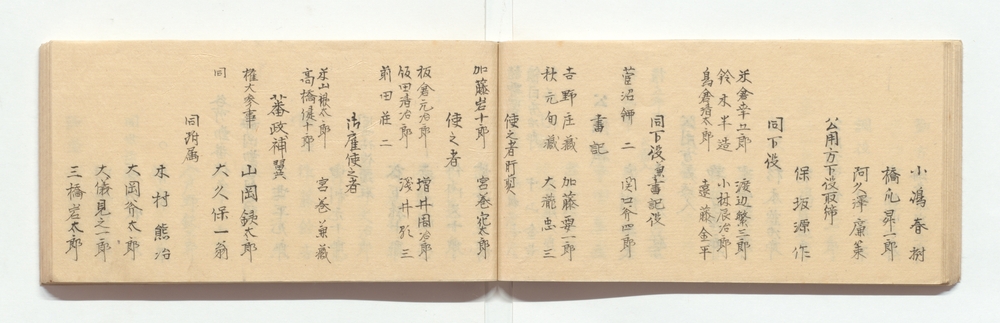 小澙春樹
橋爪昇一郎
阿久澤廉策
公用方下役取締
保坂源作
同下役
米倉幸五郎 渡辺繁三郎
鈴木半造 小林辰治郎
島倉清太郎 遠藤金平
同下役兼書記役
菅沼鉀二 関口斧四郎
書記
吉野庄蔵 加藤要一郎
秋元旬蔵 大瀧忠三
使之者所質
加藤岩十郎 宮巻宛太郎
使之者
板倉元治郎 増井周治郎
飯田清治郎 深井釟三
前田荘二
御雇使之者
米山根太郎 宮巻兼蔵
高橋健十郎
藩政補翼
権大参事 山岡鉄太郎
同 大久保一翁
同附属
木村熊治
大岡斧太郎
大儀見之一郎
三橋岩太郎